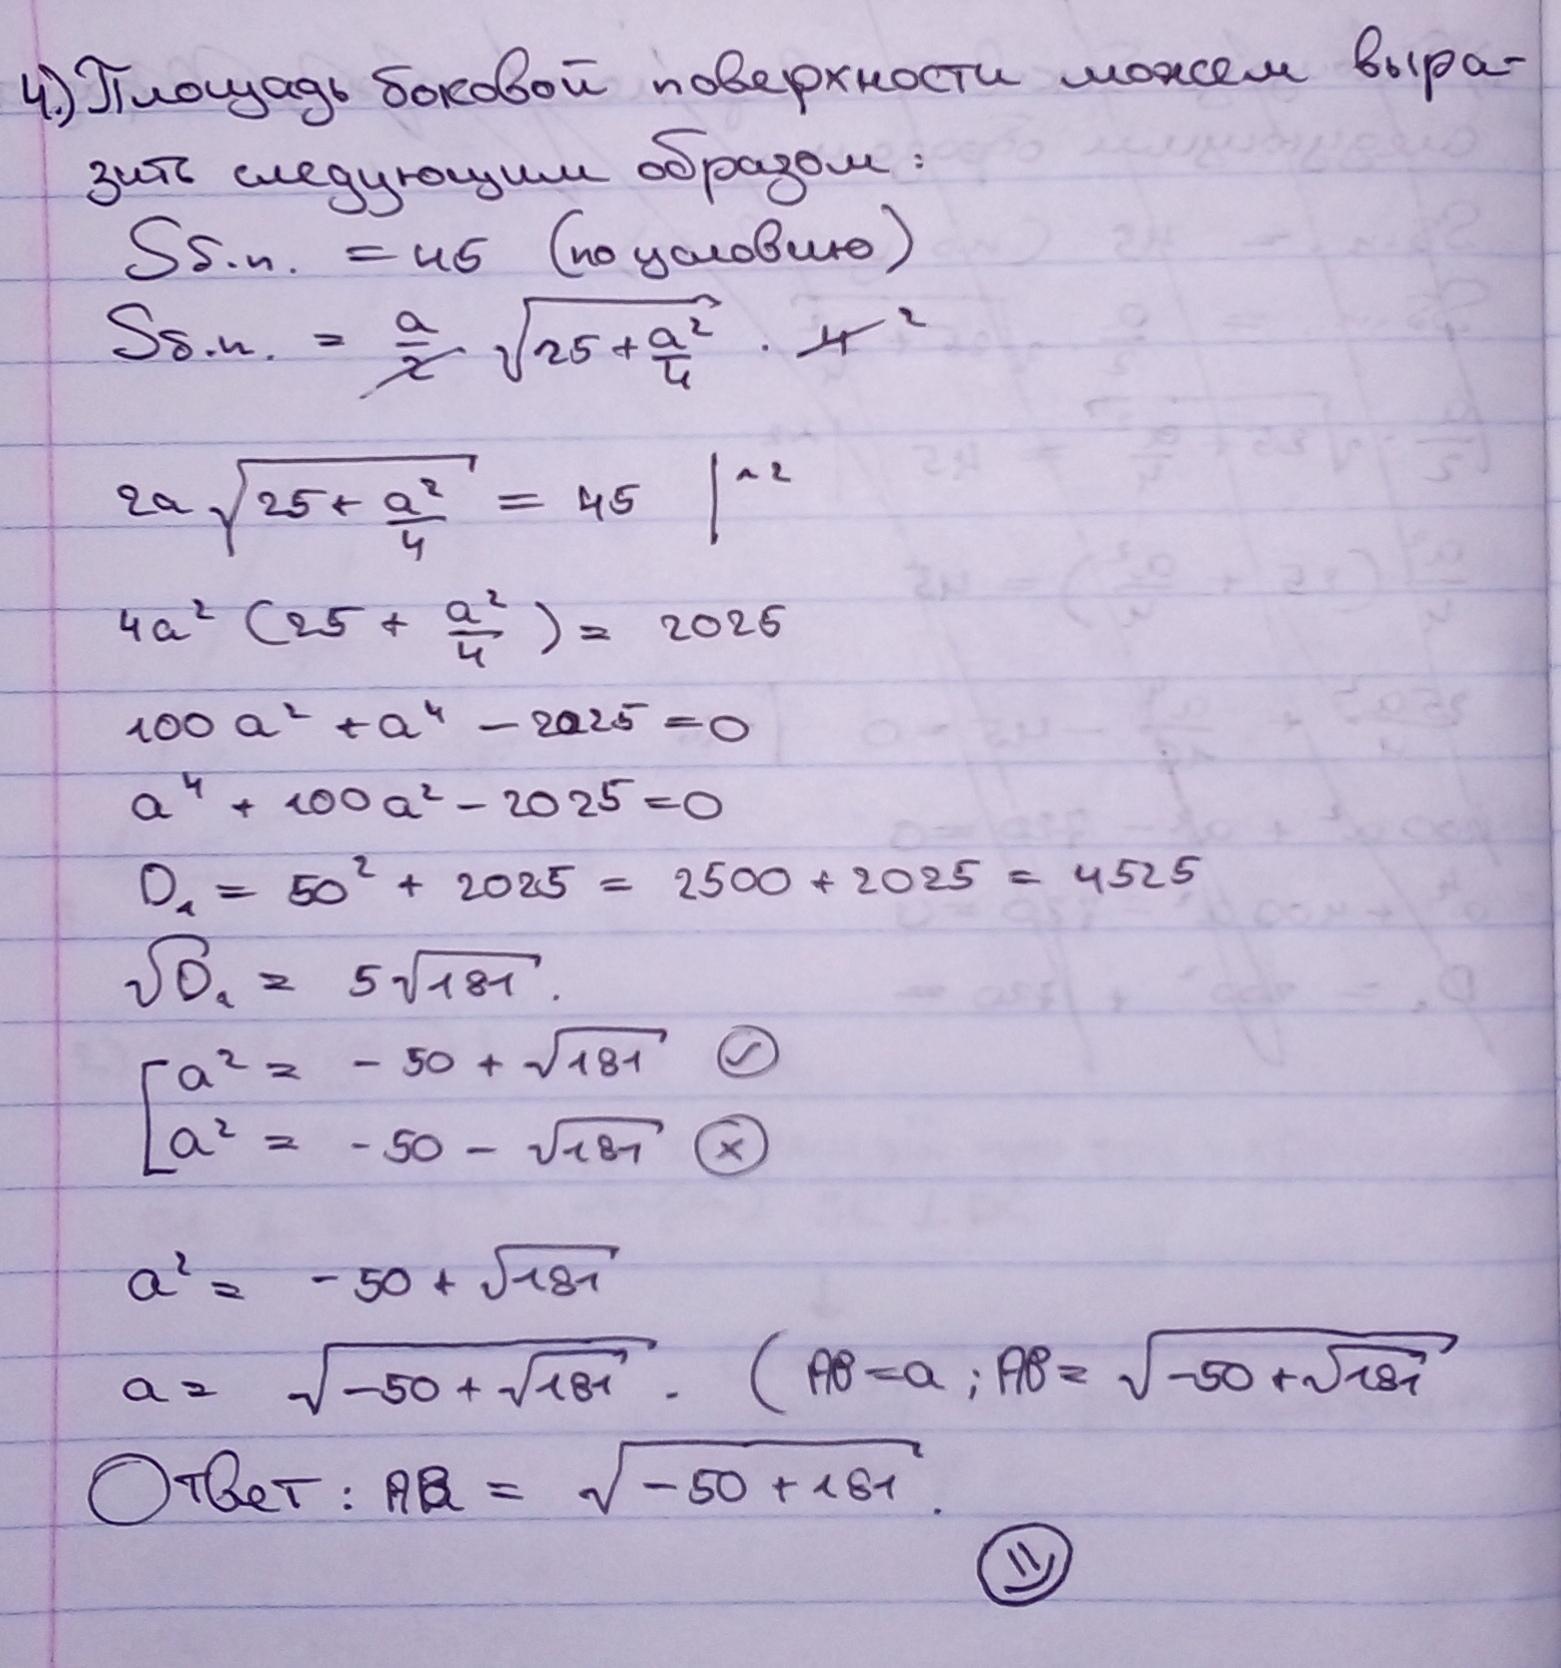 4.) Площадь боковой поверхности можем выра-
зить следующим образом:
Sб.п. = 45 (по условию)
Sб.п. = a/2 √(25 + a²/4) · 4 ²
2a √(25 + a²/4) = 45 |^2
4a² (25 + a²/4) = 2025
100a² + a⁴ - 2025 = 0
a⁴ + 100a² - 2025 = 0
D₁ = 50² + 2025 = 2500 + 2025 = 4525
√D₁ = 5√181.
[ a² = -50 + √181 ✓
[ a² = -50 - √181 ×
a² = -50 + √181
a = √(-50 + √181). (AB = a; AB = √(-50 + √181)
Ответ: AB = √(-50 + 181).